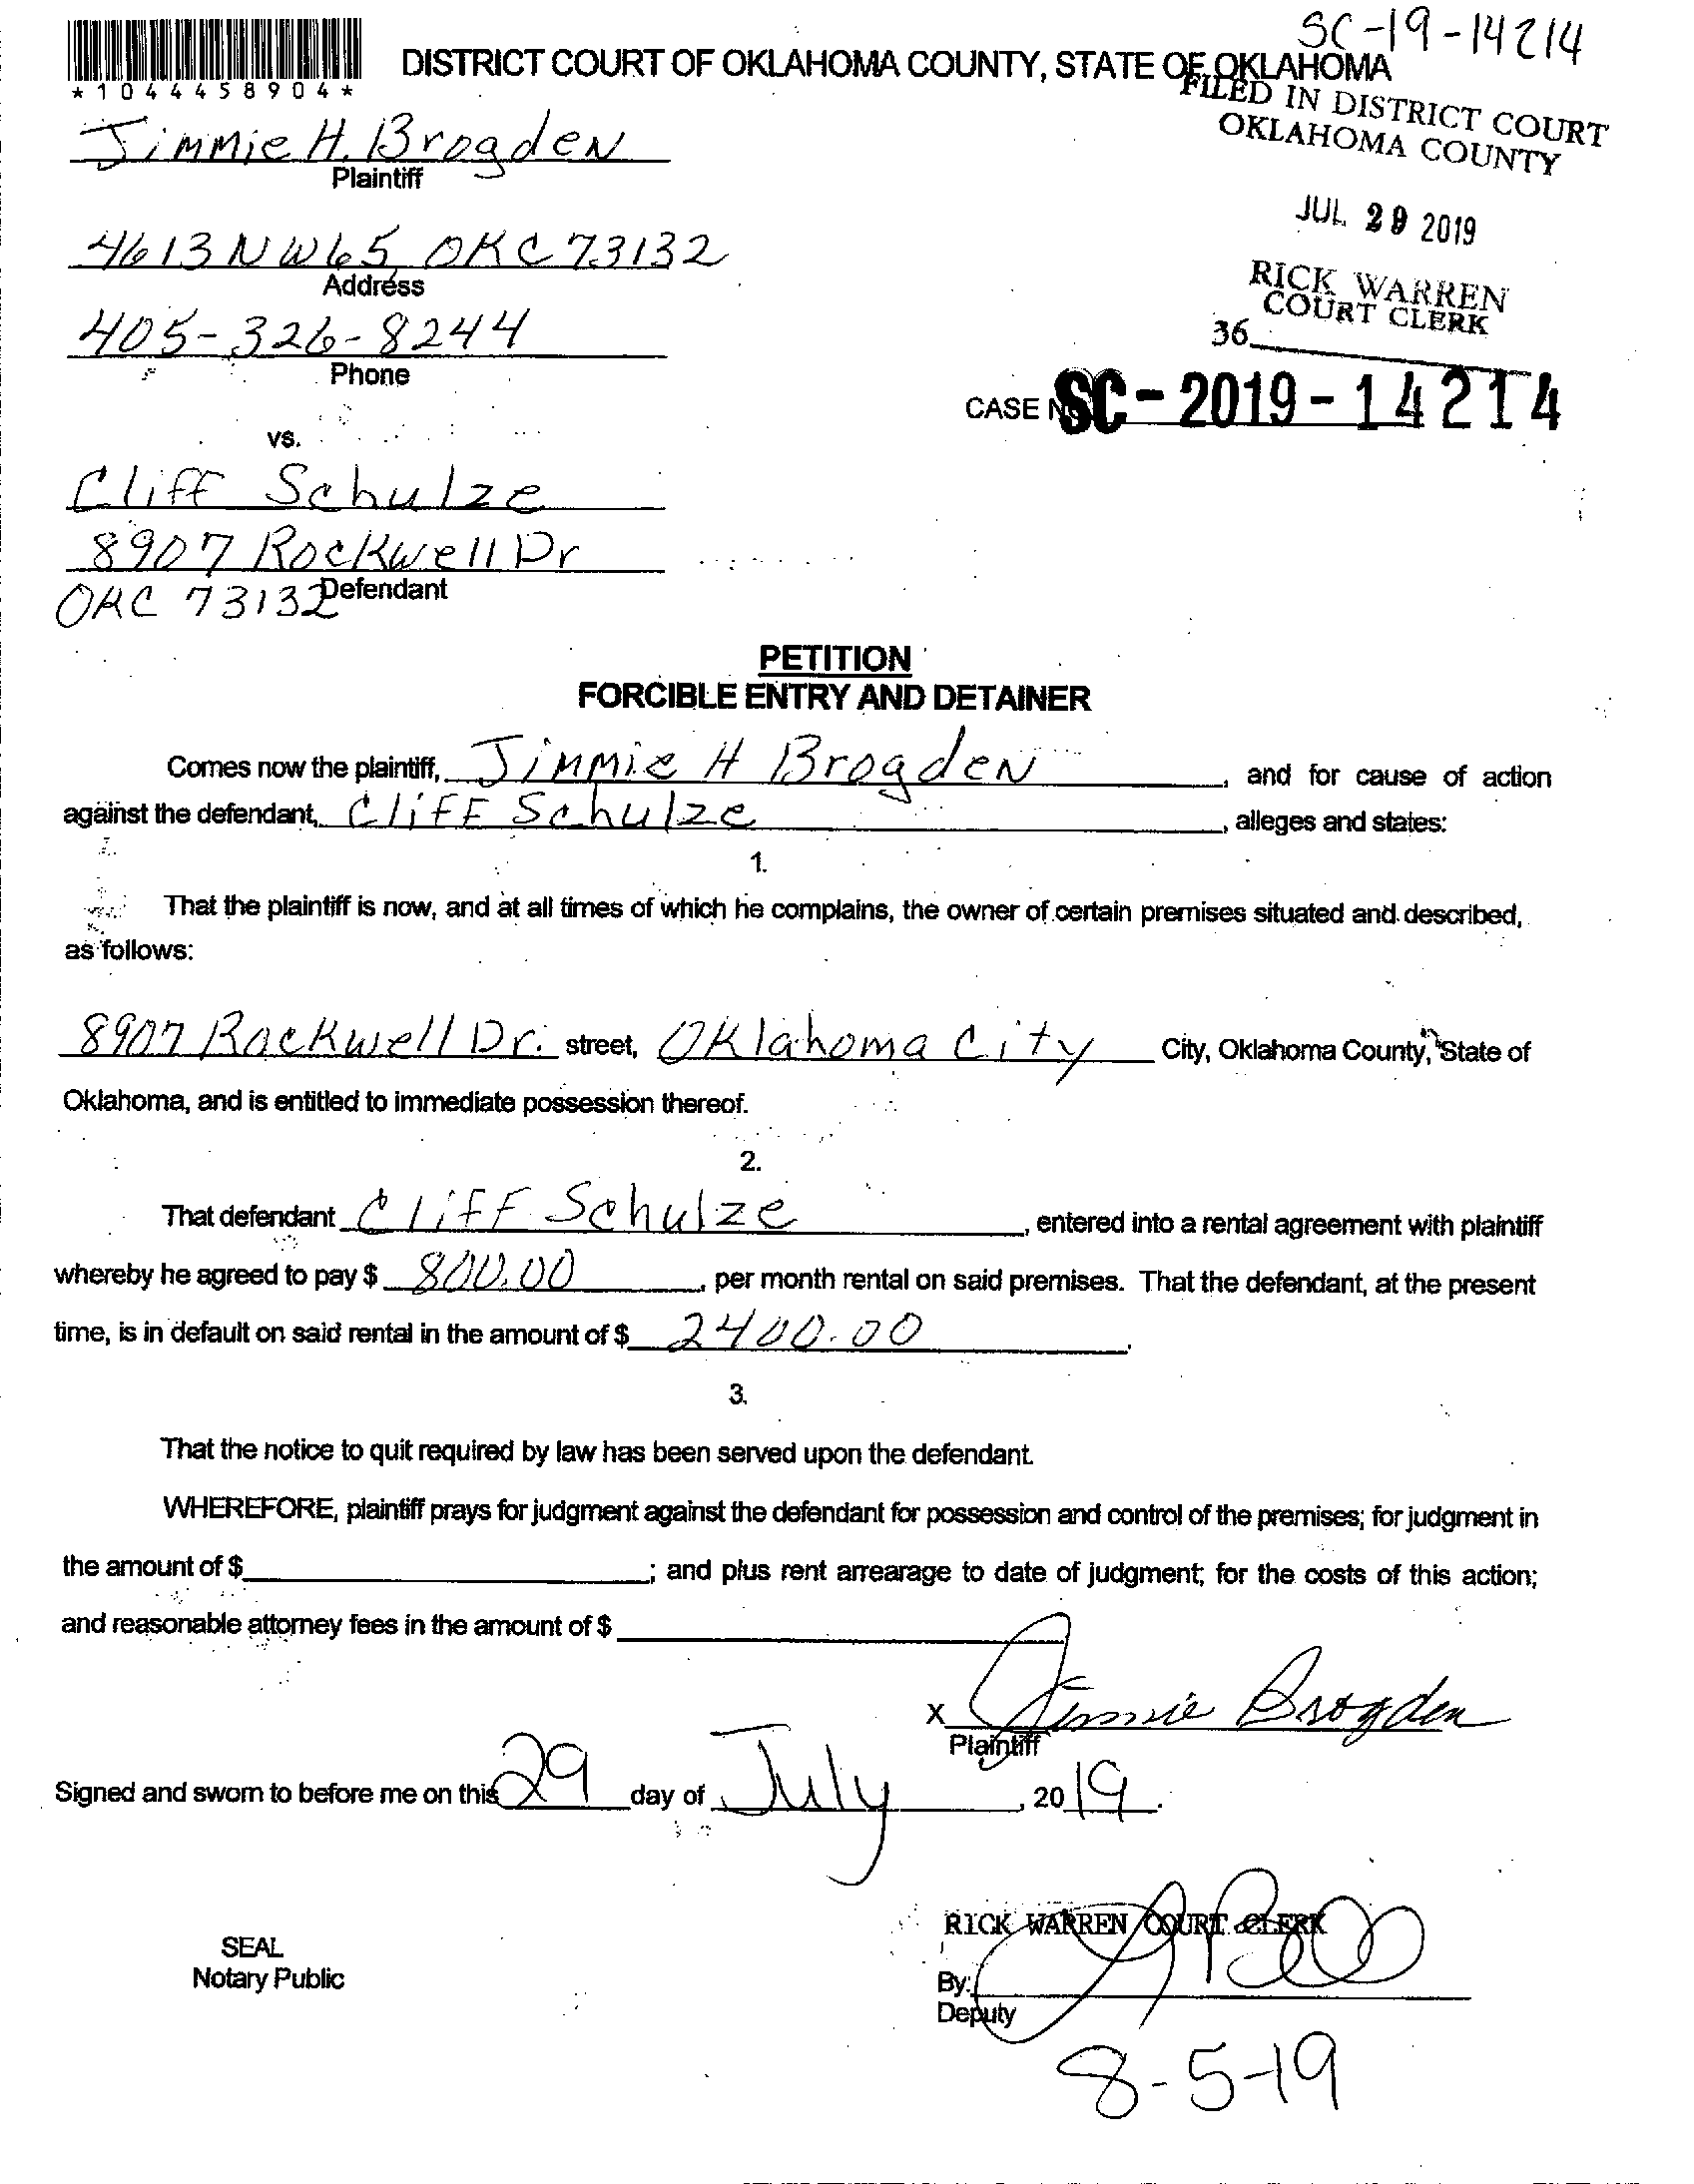 SC-19-14214
DISTRICT COURT OF OKLAHOMA COUNTY, STATE OF OKLAHOMA
*1044458904*
FILED IN DISTRICT COURT
OKLAHOMA COUNTY
Jimmie H. Brogden
Plaintiff
JUL 29 2019
4613 NW65, OKC 73132
Address
RICK WARREN
COURT CLERK
405-326-8244
36
Phone
CASE NO. SC-2019-14214
vs.
Cliff Schulze
8907 Rockwell Dr
OKC 73132 Defendant
PETITION
FORCIBLE ENTRY AND DETAINER
Comes now the plaintiff, Jimmie H Brogden, and for cause of action
against the defendant, Cliff Schulze, alleges and states:
1.
That the plaintiff is now, and at all times of which he complains, the owner of certain premises situated and described,
as follows:
8907 Rockwell Dr. street, Oklahoma City City, Oklahoma County, State of
Oklahoma, and is entitled to immediate possession thereof.
2.
That defendant Cliff Schulze, entered into a rental agreement with plaintiff
whereby he agreed to pay $ 800.00, per month rental on said premises. That the defendant, at the present
time, is in default on said rental in the amount of $ 2400.00.
3.
That the notice to quit required by law has been served upon the defendant.
WHEREFORE, plaintiff prays for judgment against the defendant for possession and control of the premises; for judgment in
the amount of $ ; and plus rent arrearage to date of judgment; for the costs of this action;
and reasonable attorney fees in the amount of $
X Jimmie Brogden
Plaintiff
Signed and sworn to before me on this 29 day of July, 2019.
RICK WARREN COURT CLERK
SEAL
Notary Public
By:
Deputy
8-5-19